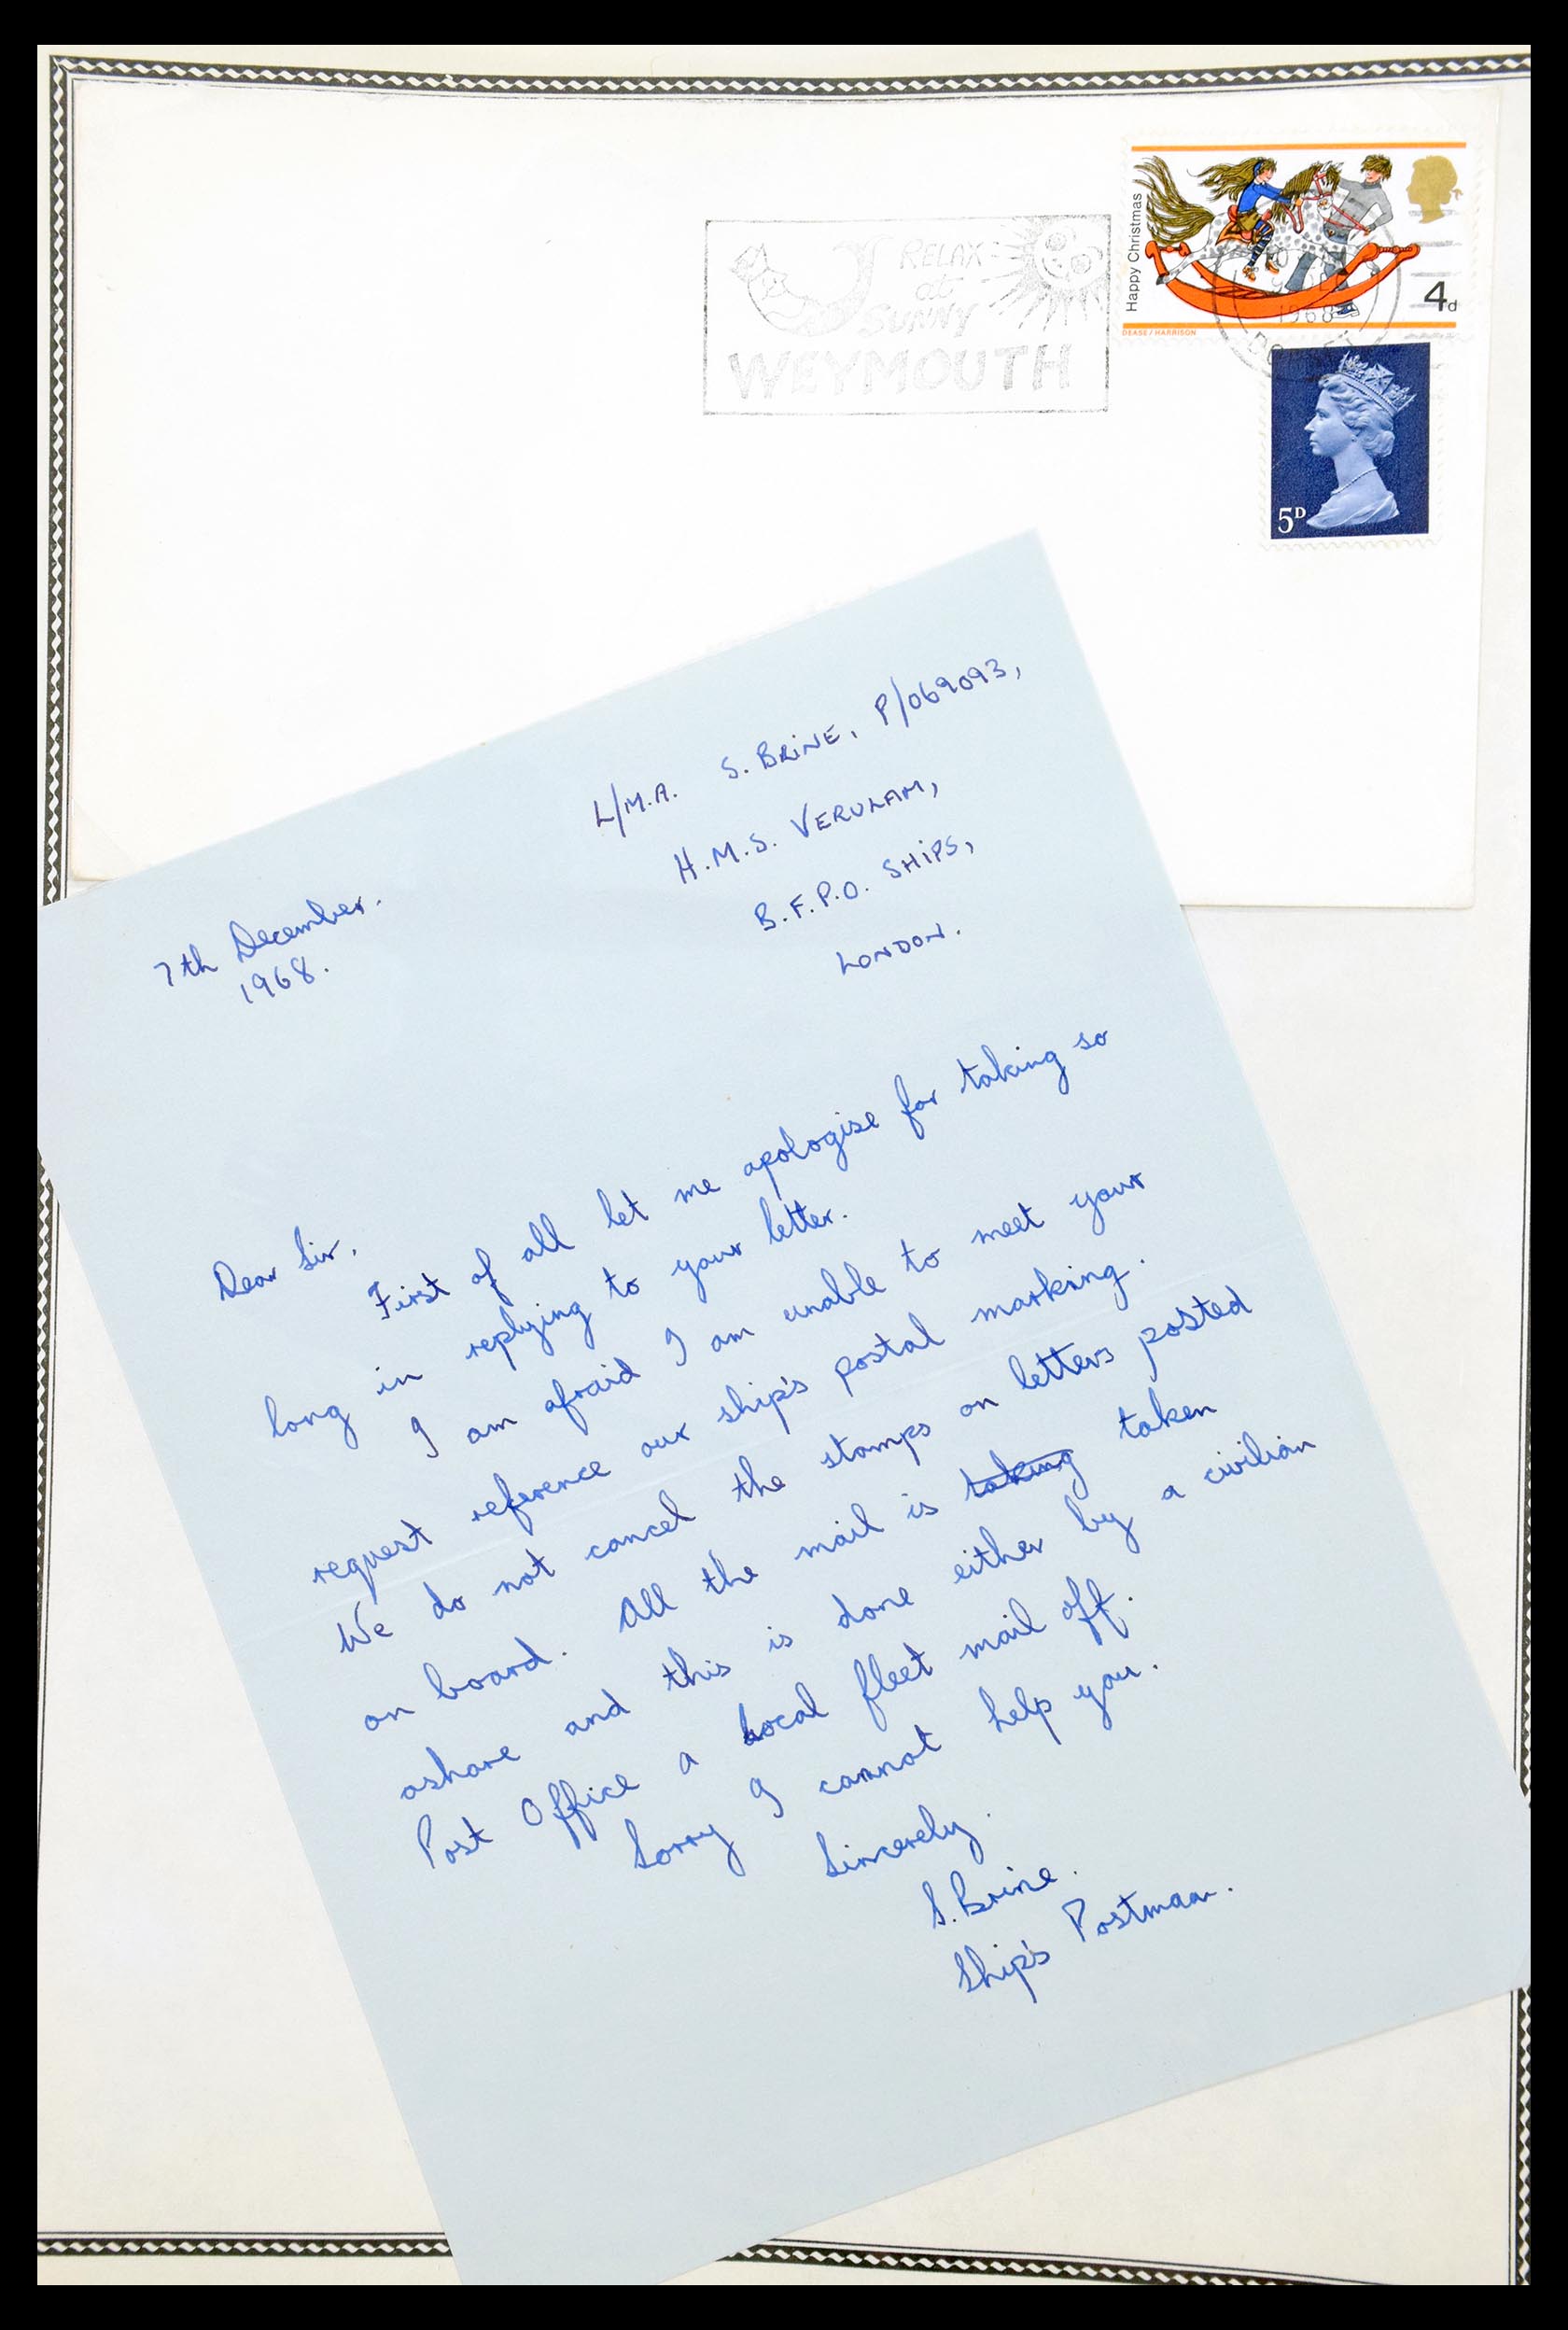 RELAX
at
SUNNY
WEYMOUTH
Happy Christmas
DEASE / HARRISON
4d
1968
DORSET
5D
L/M.A. S. BRINE, P/069093,
H.M.S. VERULAM,
B.F.P.O. SHIPS,
LONDON.
7th December.
1968.
Dear Sir,
First of all let me apologise for taking so
long in replying to your letter.
I am afraid I am unable to meet your
request reference our ship's postal marking.
We do not cancel the stamps on letters posted
on board. All the mail is taking taken
ashore and this is done either by a civilian
Post Office a local fleet mail off.
Sorry I cannot help you.
Sincerely.
S. Brine.
Ship's Postman.